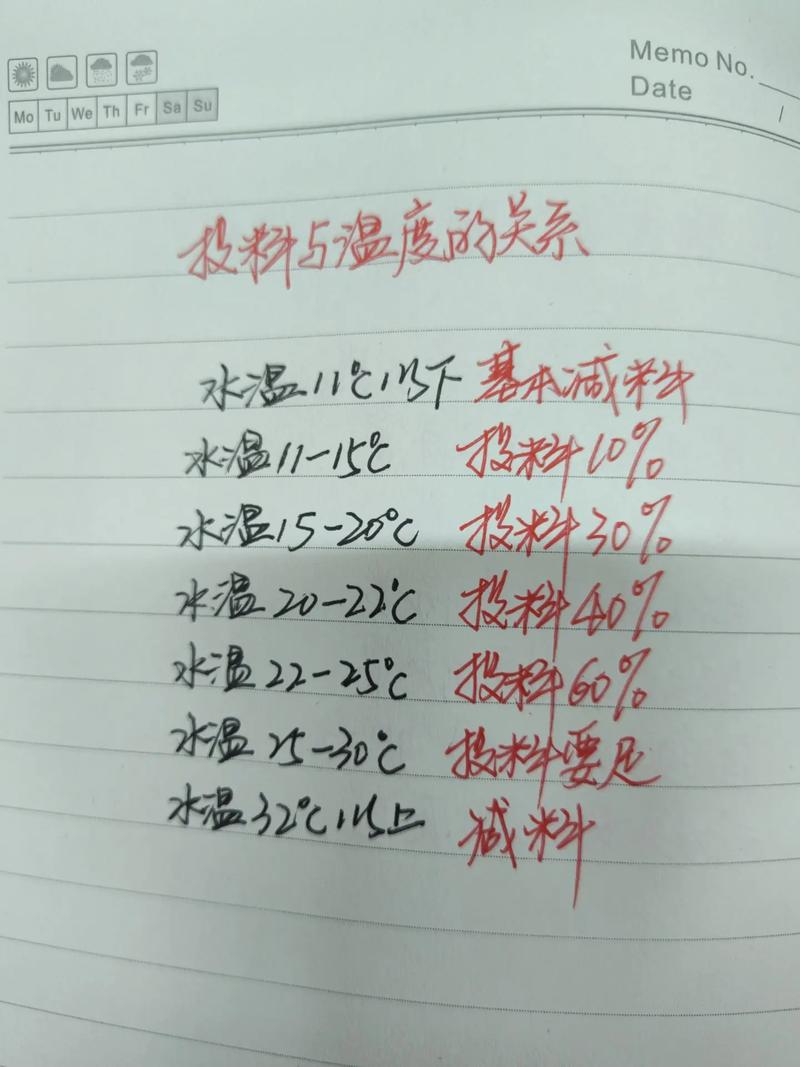 Memo No.
Date /
Mo Tu We Th Fr Sa Su
投料与温度的关系
水温11℃以下 基本减料
水温11-15℃ 投料10%
水温15-20℃ 投料30%
水温20-22℃ 投料40%
水温22-25℃ 投料60%
水温25-30℃ 投料要足
水温32℃以上 减料